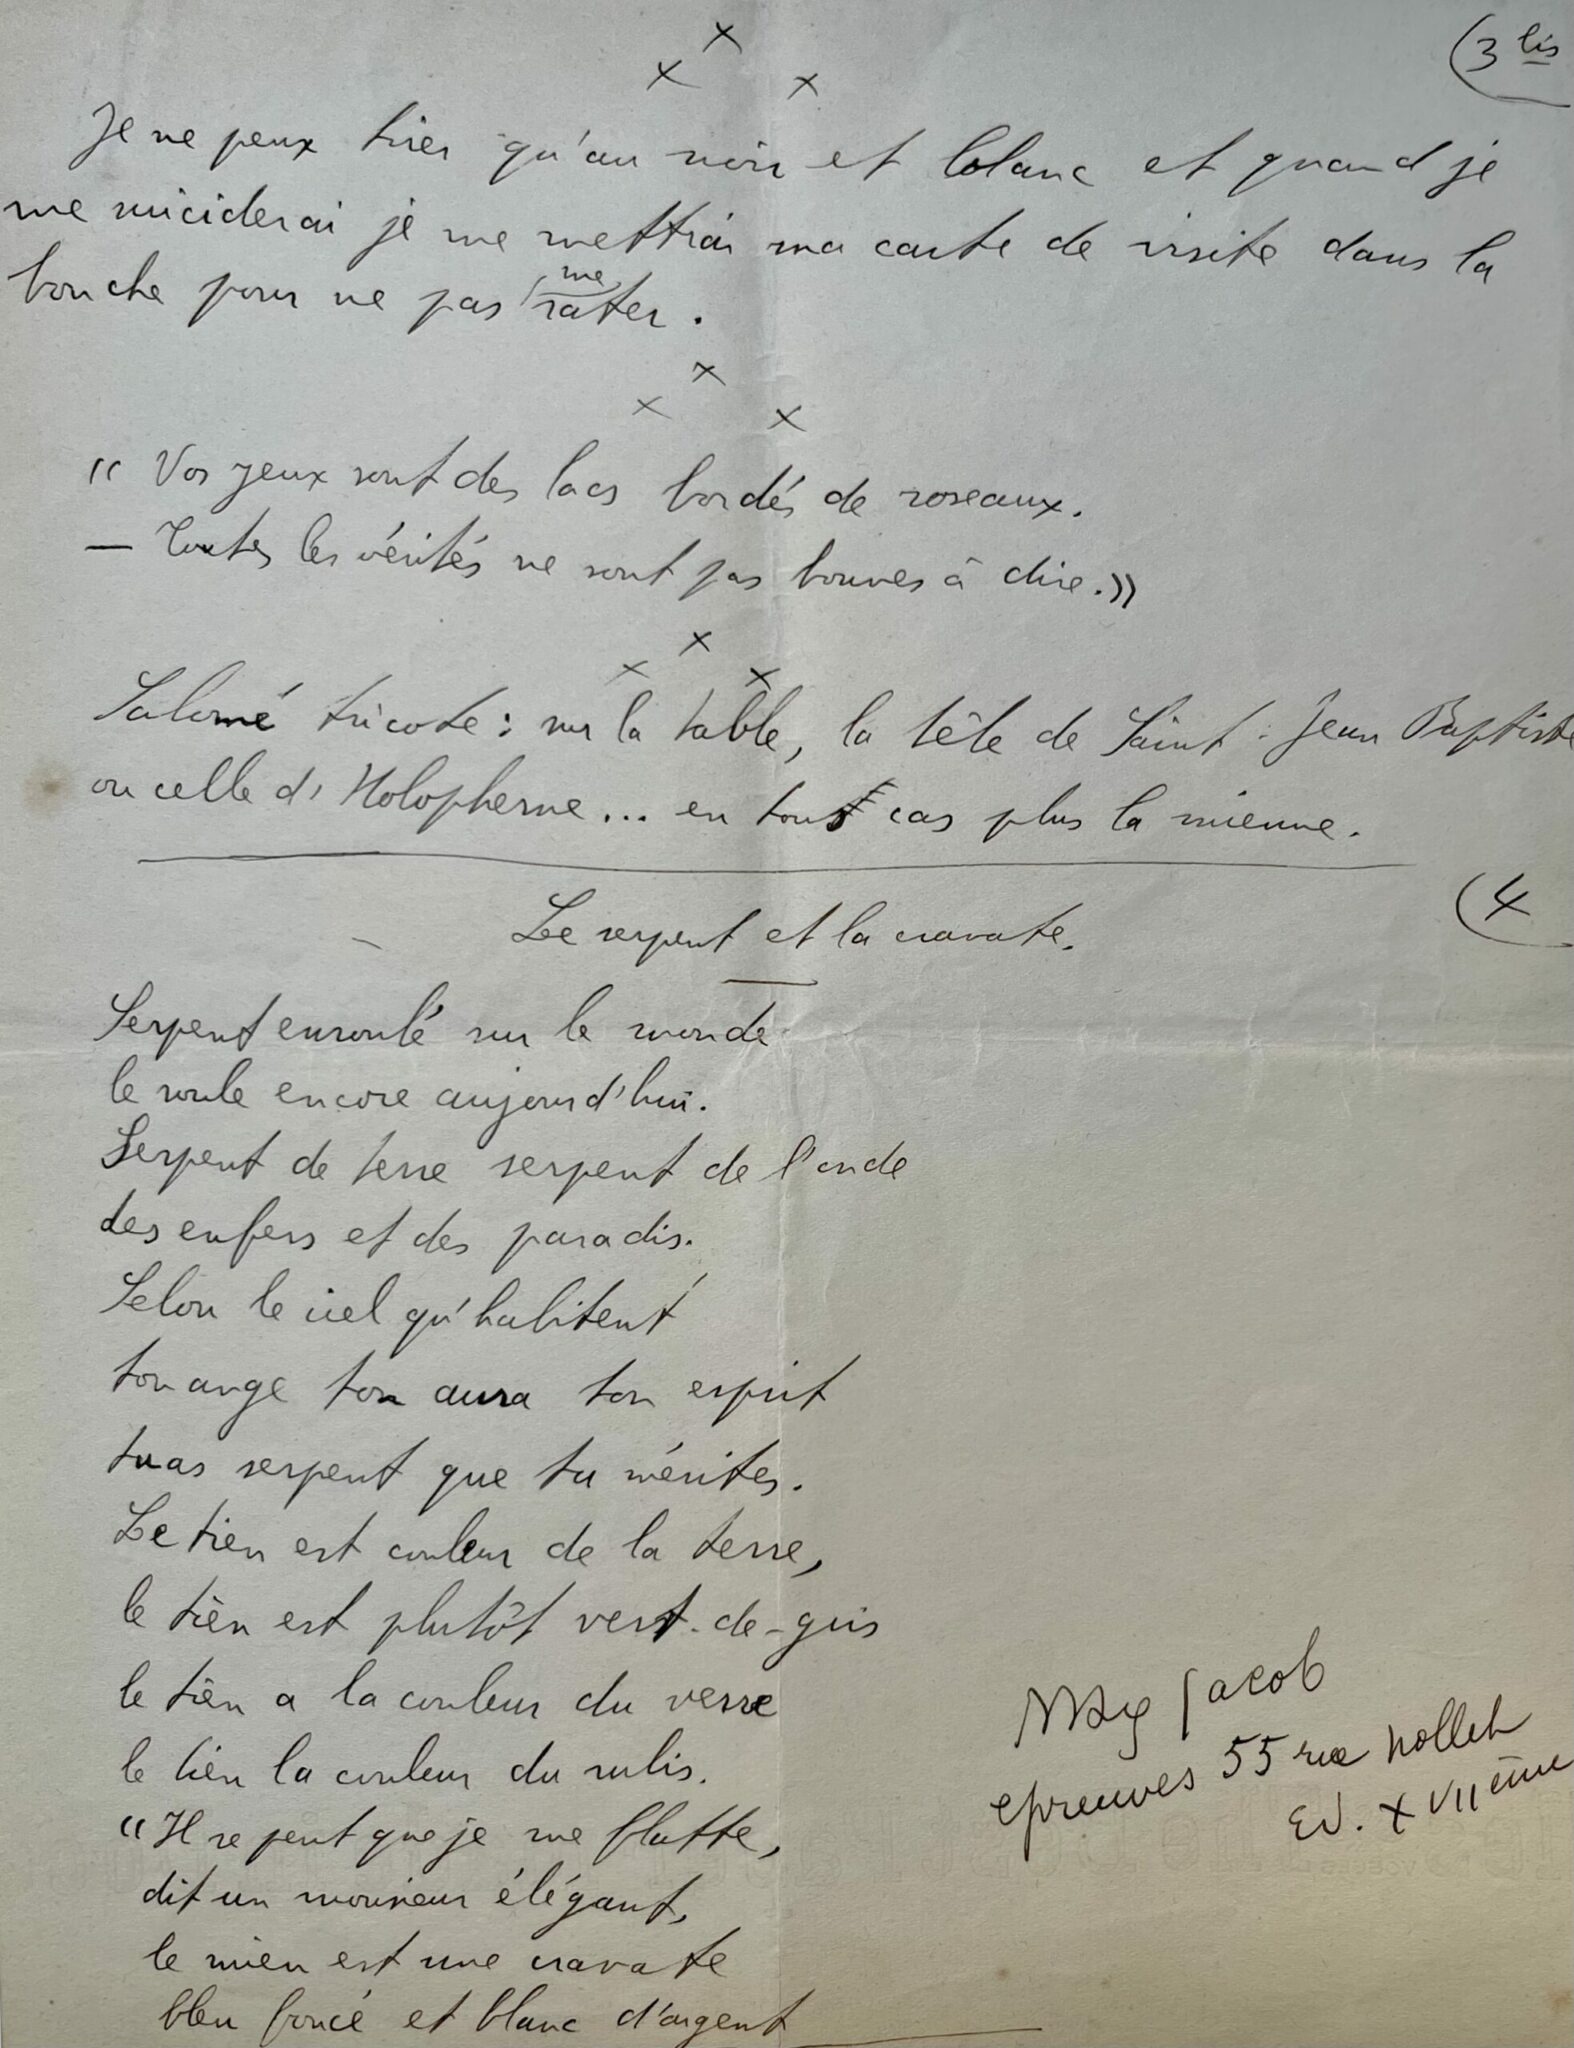 (3 bis
x x x
Je ne peux tirer qu'au noir et blanc et quand je
me suiciderai je me mettrai ma carte de visite dans la
bouche pour ne pas me rater.
x x x
"Vos yeux sont des lacs bordés de roseaux.
— Toutes les vérités ne sont pas bonnes à dire."
x x x
Salomé tricote : sur la table, la tête de Saint-Jean Baptiste
ou celle d'Holopherne... en tout cas plus la mienne.
(4
Le serpent et la cravate.
Serpent enroulé sur le monde
le roule encore aujourd'hui.
Serpent de terre serpent de l'onde
des enfers et des paradis.
Selon le ciel qu'habitent
ton ange ton aura ton esprit
tu as serpent que tu mérites.
Le tien est couleur de la terre,
le tien est plutôt vert-de-gris
le tien a la couleur du verre
le tien la couleur du rubis.
"Il se peut que je me flatte,
dit un monsieur élégant,
le mien est une cravate
bleu foncé et blanc d'argent
Max Jacob
épreuves 55 rue Nollet
EV. XVIIème